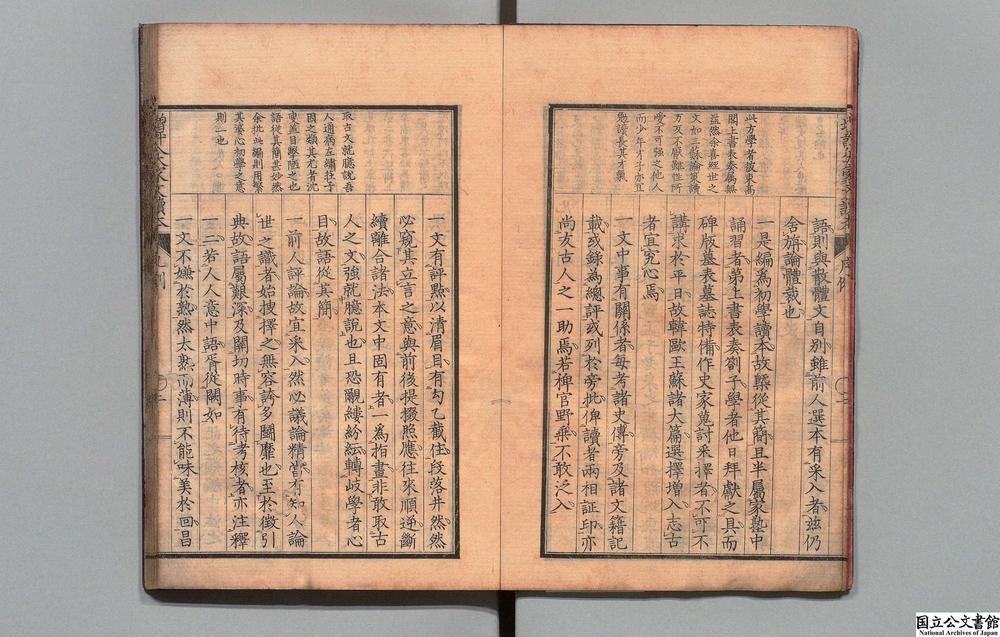 語則與散體文自別雖前人選本有采入者茲仍
舍旃論體裁也
一是編爲初學讀本故槩從其簡且半屬家塾中
誦習者第上書表奏劄子學者他日拜獻之具而
碑版墓表墓誌特備作史家蒐討采擇者不可不
講求於平日故韓歐王蘇諸大篇選擇增入志古
者宜究心焉
一文中事有關係者每考諸史傳旁及諸文籍記
載或綜爲總評或列於旁批俾讀者兩相証印亦
尚友古人之一助焉若稗官野乗不敢泛入
此方學者被束髙
閣上書表奏屬無
益然余喜經世之
文如三蘇論策讀
万反不厭雖性所
愛不可強之他人
而少年才子亦宜
勉讀長其才氣
一文有評點以清眉目有勾乙截住段落井然然
必窺其立言之意與前後提掇照應往來順逆斷
續離合諸法本文中固有者一爲指畫非敢取古
人之文強就臆說也且恐覼縷紛紜轉歧學者心
目故語從其簡
一前人評論故宜采入然必議論精當有知人論
世之識者始搜擇之無容誇多鬭靡也至於徵引
典故語屬艱深及關切時事有待考核者亦注釋
一二若人人意中語胥從闕如
一文不嫌於熟然太熟而薄則不能味美於回昌
取古文就臆説吾
人通病左繡莊子
因之類其尤者沈
叟蓋目擊陋之也
語從其簡甚妙然
余批此編則用繁
其婆心初學之意
則一也
国立公文書館
National Archives of Japan